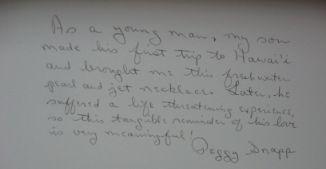 As a young man, my son
made his first trip to Hawai'i
and brought me this freshwater
pearl and jet necklace. Later, he
suffered a life threatening experience,
so this tangible reminder of his love
is very meaningful!
Peggy Knapp